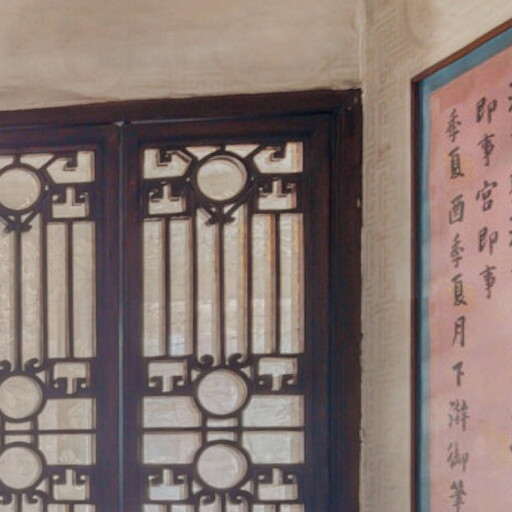 即事宮即事
季夏酉季夏月下澣御筆